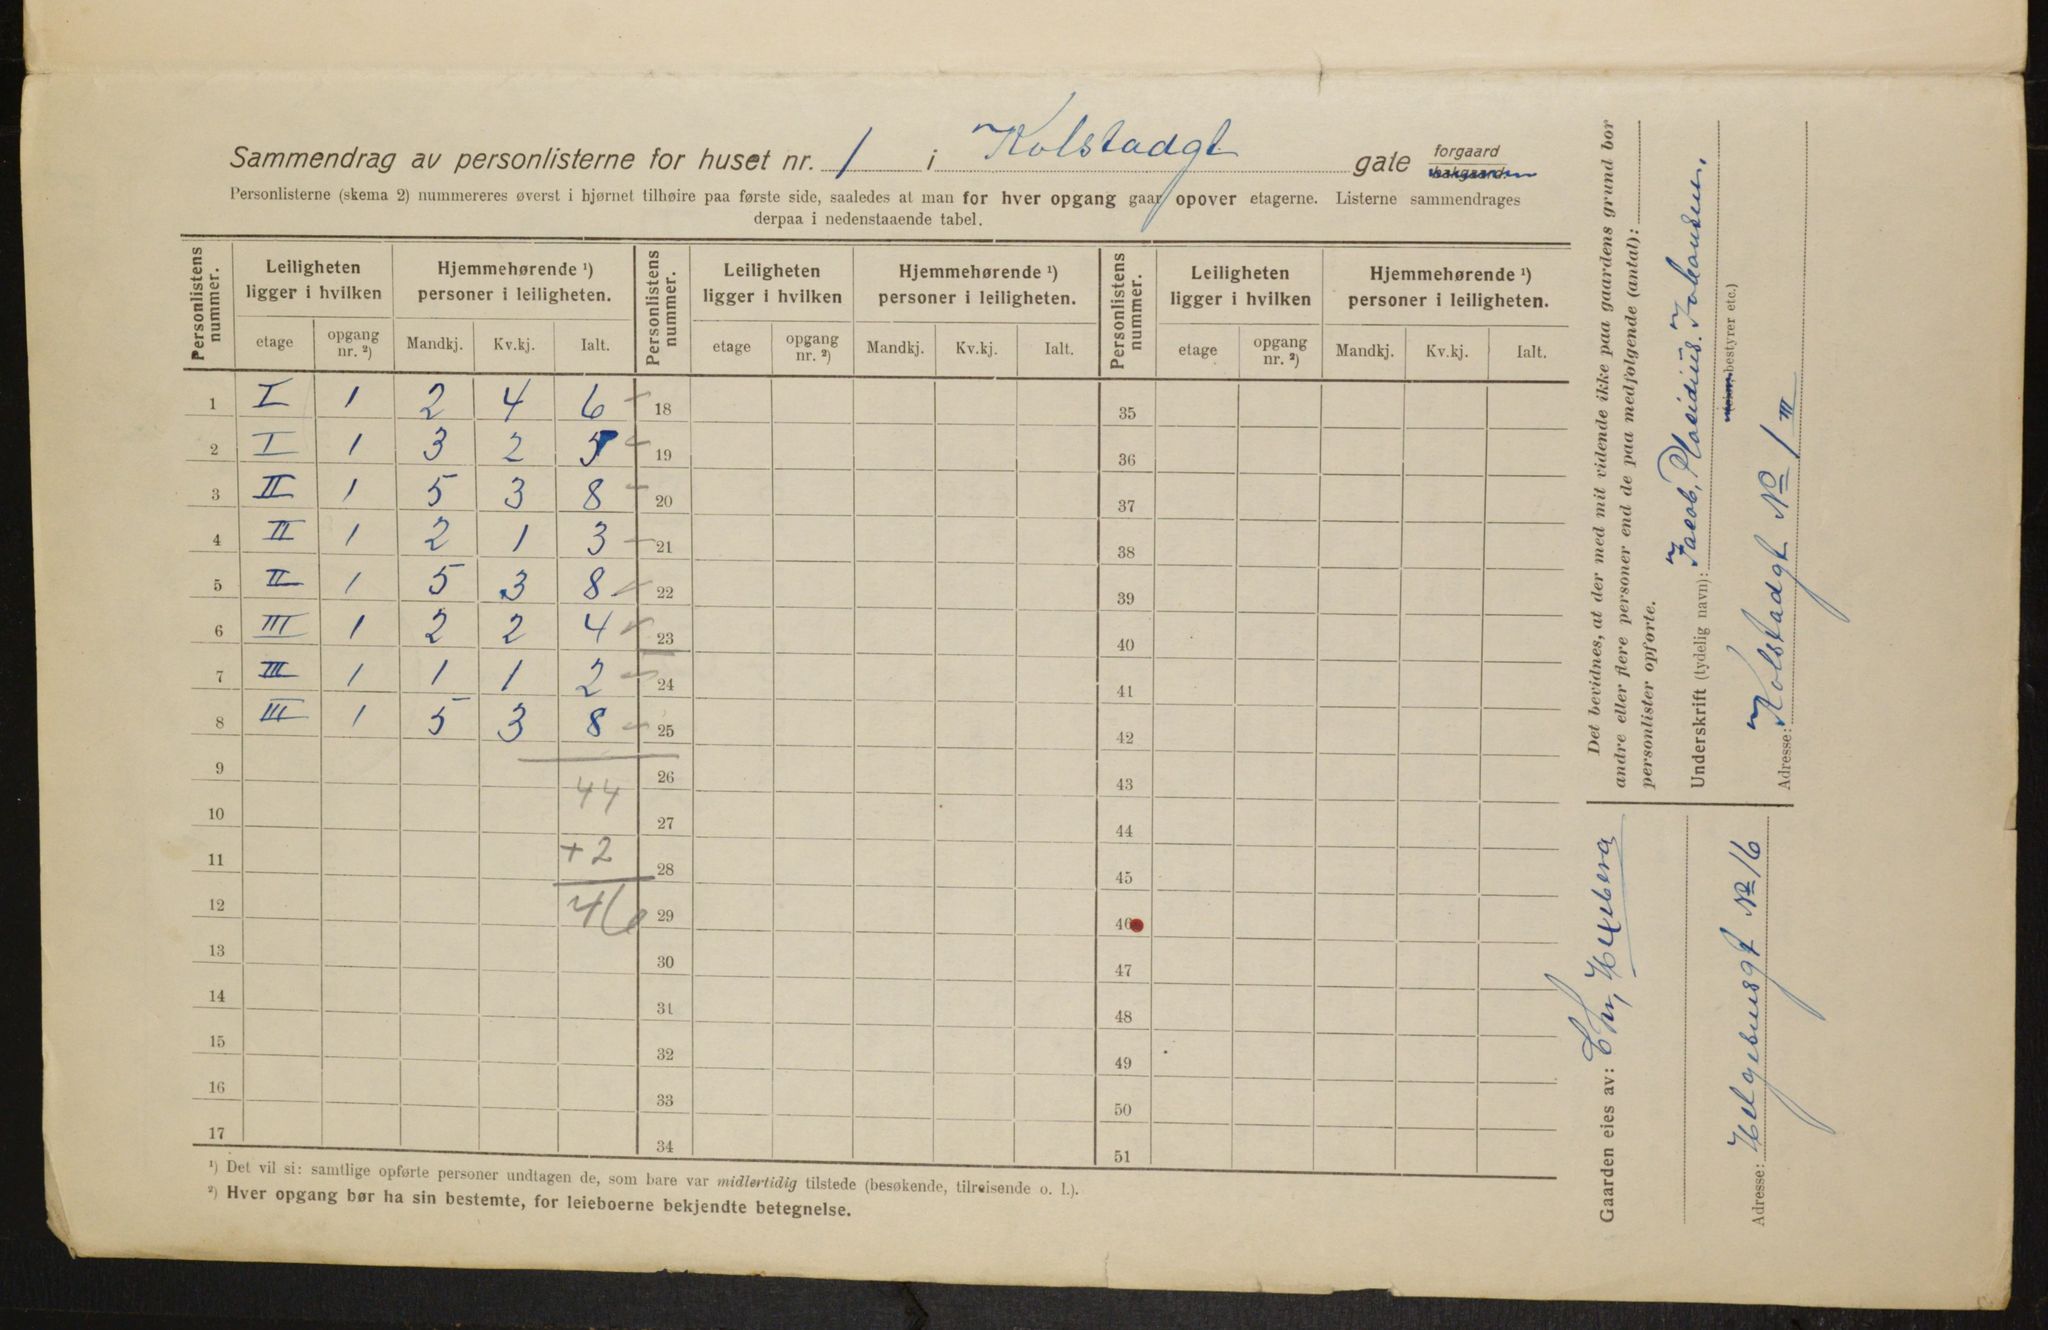 Sammendrag av personlisterne for huset nr. 1 i Kolstadgt gate forgaard bakgaard.
Personlisterne (skema 2) nummereres øverst i hjørnet tilhøire paa første side, saaledes at man for hver opgang gaar opover etagerne. Listerne sammendrages
derpaa i nedenstaaende tabel.
Personlistens nummer. Leiligheten ligger i hvilken Hjemmehørende ¹) personer i leiligheten. Personlistens nummer. Leiligheten ligger i hvilken Hjemmehørende ¹) personer i leiligheten. Personlistens nummer. Leiligheten ligger i hvilken Hjemmehørende ¹) personer i leiligheten.
etage opgang nr. ²) Mandkj. Kv.kj. Ialt. etage opgang nr. ²) Mandkj. Kv.kj. Ialt. etage opgang nr. ²) Mandkj. Kv.kj. Ialt.
1 I 1 2 4 6 18 35
2 I 1 3 2 5 19 36
3 II 1 5 3 8 20 37
4 II 1 2 1 3 21 38
5 II 1 5 3 8 22 39
6 III 1 2 2 4 23 40
7 III 1 1 1 2 24 41
8 III 1 5 3 8 25 42
9 44 26 43
10 27 44
11 +2 28 45
12 46 29 46
13 30 47
14 31 48
15 32 49
16 33 50
17 34 51
¹) Det vil si: samtlige opførte personer undtagen de, som bare var midlertidig tilstede (besøkende, tilreisende o. l.).
²) Hver opgang bør ha sin bestemte, for leieboerne bekjendte betegnelse.
Det bevidnes, at der med mit vidende ikke paa gaardens grund bor
andre eller flere personer end de paa medfølgende (antal):
personlister opførte.
Underskrift (tydelig navn): Jacob, Plasidius. Johansen.
(eier, bestyrer etc.)
Adresse: Kolstadgt No 1 III
Gaarden eies av: Chr,
Adresse: Helgesensgt No 16